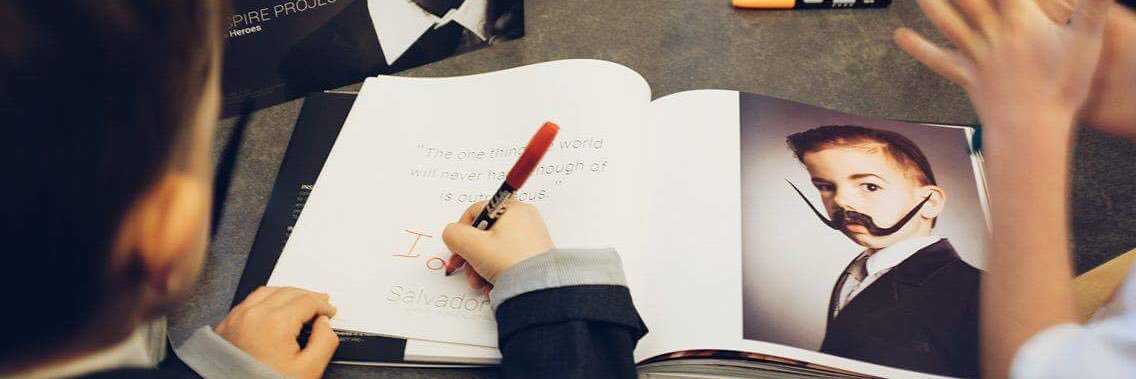 SPIRE PROJECT
Heroes
"The one thing world
will never ha nough of
is out ous."
I
Salvador